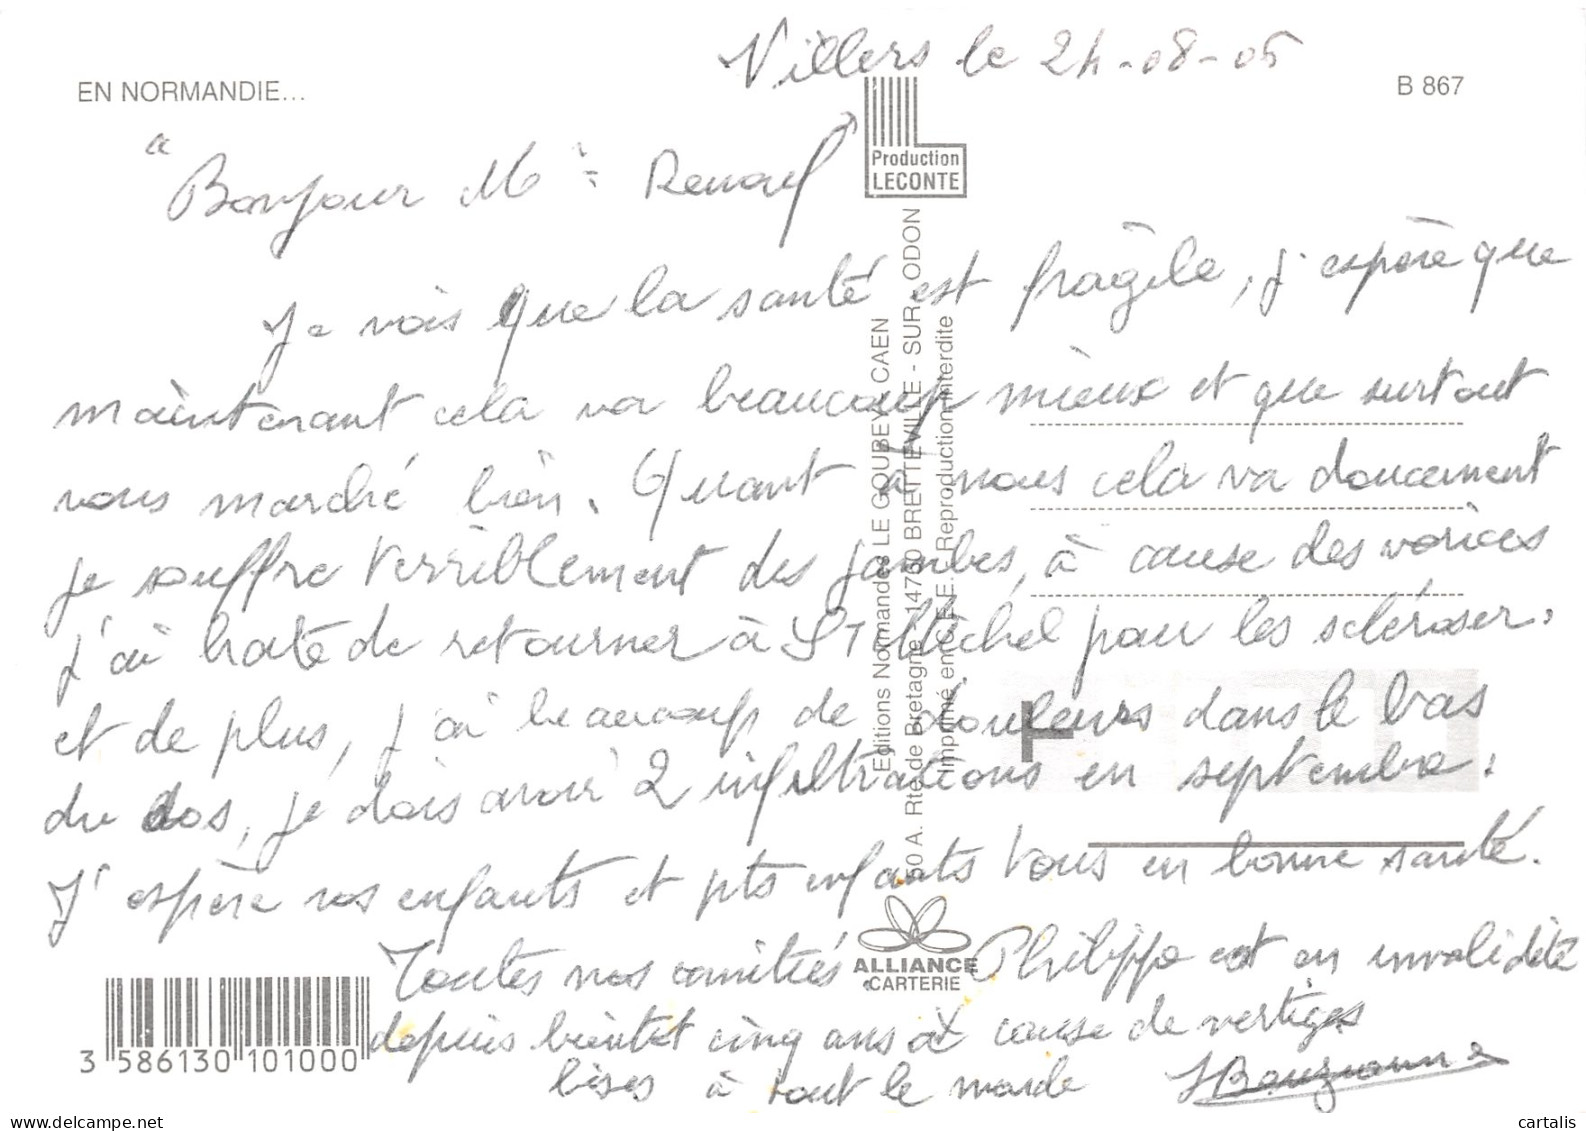 Villers le 24-08-05
EN NORMANDIE...
B 867
"Bonjour Me Renouf
Production
LECONTE
Je vois que la santé est fragile, j'espère que
maintenant cela va beaucoup mieux et que surtout
vous marché bien. Quant à nous cela va doucement
je souffre terriblement des jambes, à cause des varices
j'ai hate de retourner à St Michel pour les scléroser.
et de plus, j'ai beaucoup de douleurs dans le bas
du dos, je dois avoir 2 infiltrations en septembre.
J'espère vos enfants et pts enfants tous en bonne santé.
Toutes nos amitiés Philippe est en invalidité
depuis bientot cinq ans à cause de vertiges
bises à tout le monde
Editions Normandes LE GOUBEY CAEN
50 A. Rte de Bretagne - 14760 BRETTEVILLE - SUR - ODON
Imprimé en C.E.E. Reproduction interdite
ALLIANCE
CARTERIE
3 586130 101000
cartalis
www.delcampe.net